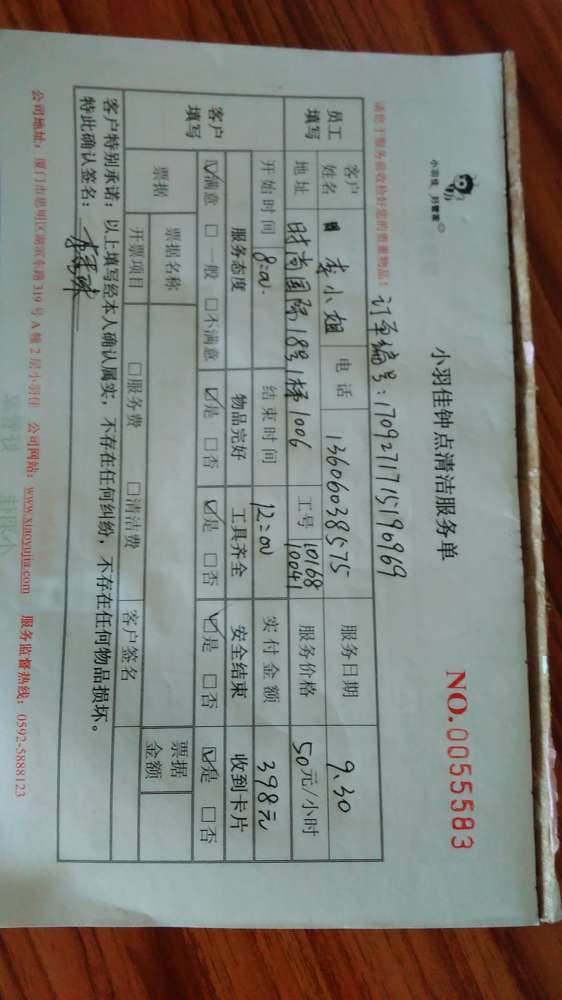 小羽佳 郑蕾蕾
小羽佳钟点清洁服务单
NO.0055583
请您于服务前收检好您的贵重物品！
订单编号：1709271715190969
员工填写
客户姓名 李小姐 电话 13606038575 服务日期 9.30
地址 时尚国际18号1梯1006 工号 10168 10041 服务价格 50元/小时
开始时间 8:00. 结束时间 12:00 实付金额 398元
客户填写
服务态度 物品完好 工具齐全 安全结束 收到卡片
☑满意 □一般 □不满意 ☑是 □否 ☑是 □否 ☑是 □否 ☑是 □否
票据 票据名称 票据金额
开票项目 □服务费 □清洁费 客户签名
客户特别承诺：以上填写经本人确认属实，不存在任何纠纷，不存在任何物品损坏。
特此确认签名：
公司地址：厦门市思明区湖滨东路319号A幢2层小羽佳 公司网站：www.xiaoyujia.com 服务监督热线：0592-5888123